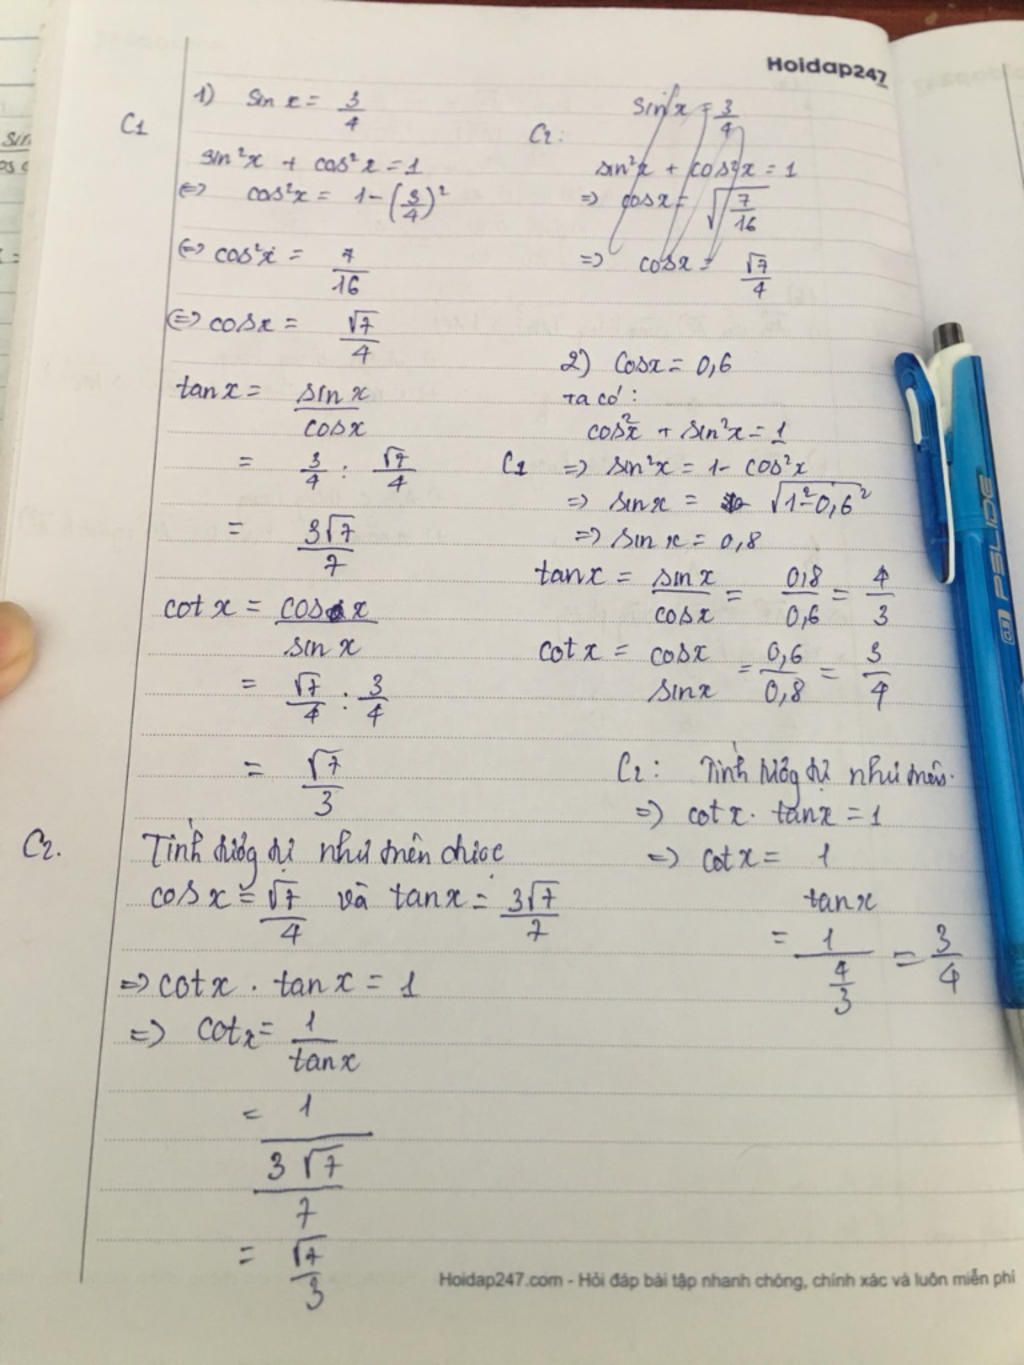 Hoidap247
C1
1) sin x = 3/4
sin²x + cos²x = 1
<=> cos²x = 1 - (3/4)²
<=> cos²x = 7/16
<=> cosx = √7/4
tan x = sin x / cos x
= 3/4 : √7/4
= 3√7/7
cot x = cos x / sin x
= √7/4 : 3/4
= √7/3
C2.
Tính tương tự như trên được
cos x = √7/4 và tan x = 3√7/7
=> cot x . tan x = 1
=> cot x = 1/tan x
= 1/(3√7/7)
= √7/3
C2:
sin x = 3/4
sin²x + cos²x = 1
=> cosx = √(7/16)
=> cosx = √7/4
2) cosx = 0,6
Ta có:
cos²x + sin²x = 1
C1 => sin²x = 1 - cos²x
=> sin x = √(1² - 0,6²)
=> sin x = 0,8
tan x = sin x / cos x = 0,8/0,6 = 4/3
cot x = cos x / sin x = 0,6/0,8 = 3/4
C2: Tính tương tự như trên.
=> cot x . tan x = 1
=> cot x = 1/tan x
= 1/(4/3) = 3/4
PELIDE
Hoidap247.com - Hỏi đáp bài tập nhanh chóng, chính xác và luôn miễn phí